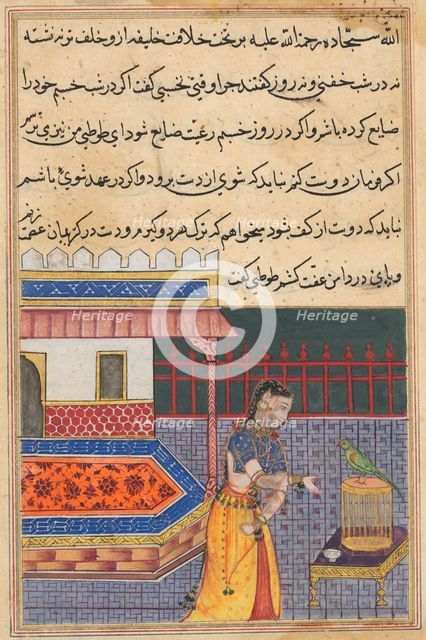 الله سجاده رحمة الله علیه بر تخت خلافت خلیفه از و خلف تر ننشته
نه در شب خفتی و نه روز گفتند چرا وقتی نخسبی گفت اگر در شب خسبم خود را
ضایع کرده باشم و اگر در روز خسبم رعیت ضایع شود ای طوطی من نیزی ترسم
اگر فرمان دوست کنم نباید که شوی از دست برود و اگر در عهد شوی باشم
نباید که دوست از کف بشود میخواهم که ترک هر دو گیرم و دست در گریبان عصمت زنم
و پای در دامن عفت کشم طوطی گفت
Heritage
Heritage
Heritage
Heritage
Heritage
Heritage
Heritage